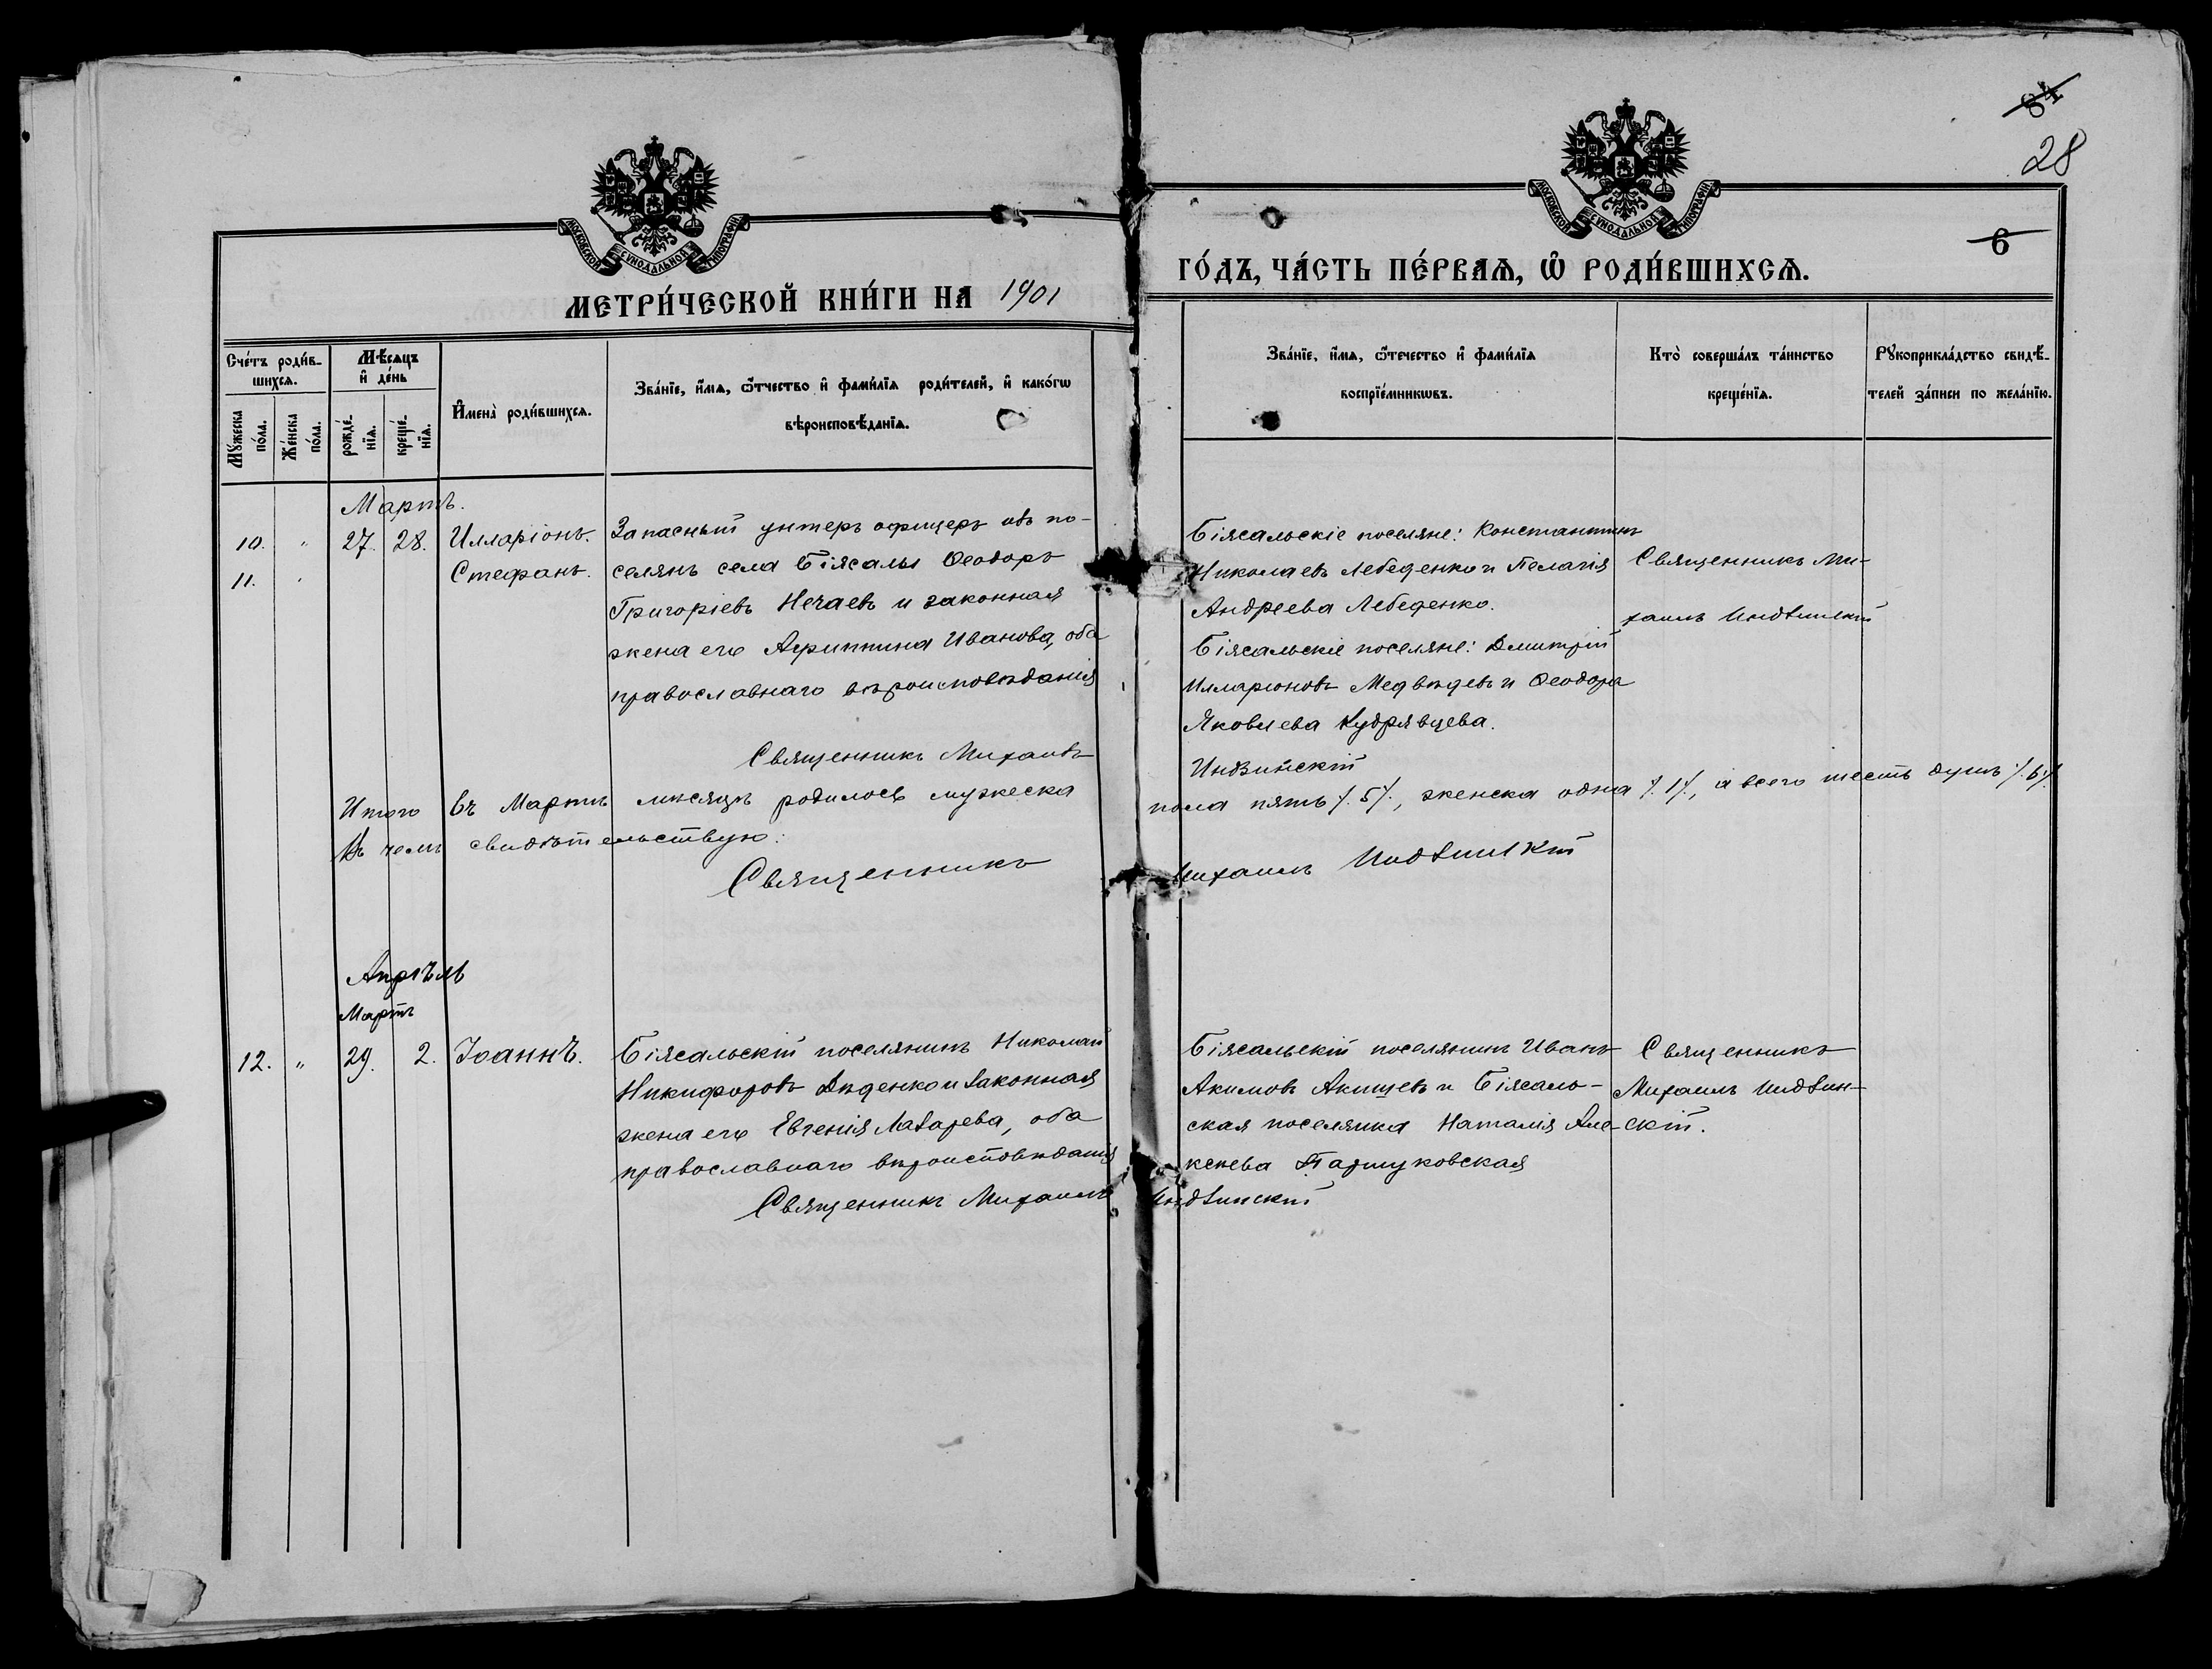 84
28
6
МОСКОВСКОЙ СУНОДАЛЬНОЙ ТИПОГРАФІИ
МОСКОВСКОЙ СУНОДАЛЬНОЙ ТИПОГРАФІИ
МЕТРИ́ЧЕСКОЙ КНИ́ГИ НА 1901
ГО́ДЪ, ЧА́СТЬ ПЕ́РВАѦ, Ѡ РОДИ́ВШИХСѦ.
Сче́тъ роди́в-
шихсѧ.
Мꙋ́жеска
по́ла.
Же́нска
по́ла.
Мѣ́сѧцъ
и҆ де́нь
рожде́-
нїѧ.
креще́-
нїѧ.
И҆мена̀ роди́вшихсѧ.
Зва́нїе, и҆́мѧ, ѻ҆́тчество и҆ фами́лїѧ роди́телей, и҆ како́гѡ
вѣроисповѣ́данїѧ.
Зва́нїе, и҆́мѧ, ѻ҆те́чество и҆ фами́лїѧ
воспрїе́мникѡвъ.
Кто̀ соверша́лъ та́инство
креще́нїѧ.
Рꙋкоприкла́дство свидѣ́-
телей за́писи по жела́нїю.
Мартъ.
10. " 27. 28. Илларіонъ. Запасный унтеръ офицеръ изъ по-
11. " Стефанъ. селянъ села Біясалы Ѳеодоръ
Григоріевъ Нечаевъ и законная
жена его Агриппина Иванова, оба
православнаго вѣроисповѣданія
Священникъ Михаилъ
Біясальскіе поселяне: Константинъ
Николаевъ Лебеденко и Пелагія
Андреева Лебеденко.
Біясальскіе поселяне: Дмитрій
Илларіоновъ Медвѣдевъ и Ѳеодора
Яковлева Кудрявцева.
Индзинскій
Священникъ Ми-
хаилъ Индзинскій
Итого въ Мартѣ мѣсяцѣ родилось мужеска
пола пять /.5/., женска одна /.1/., а всего шесть душъ /.6/.
Въ чемъ свидѣтельствую:
Священникъ
Михаилъ Индзинскій
Апрѣль
Мартъ
12. " 29. 2. Іоаннъ. Біясальскій поселянинъ Николай
Никифоровъ Дѣденко и законная
жена его Евгенія Лазарева, оба
православнаго вѣроисповѣданія
Священникъ Михаилъ
Біясальскій поселянинъ Иванъ
Акимовъ Акишевъ и Біясаль-
ская поселянка Наталія Але-
ксѣева Паршуковская
Индзинскій
Священникъ
Михаилъ Индзин-
скій.